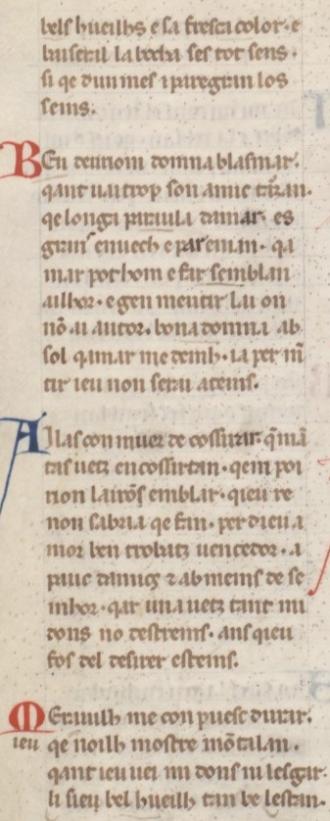 bels hueilhs e sa fresca color· e
baiserai la bocha ses tot sens·
si qe dun mes i paregran los
seins.
Ben deuriom domna blasmar·
qant uai trop son amic tarzan·
qe longa paraula damar· es
gran enuech e par enian· qa
mar pot hom e far semblan
ailhor· e gen mentir lai on
nō ai autor· bona domna ab
sol qamar me denh· ia per m̄
tir ieu non serai ateins.
Ailas con muer de cossirar· q̄ mā
tas uetz en cossir tan· qem poi
rion lairōs emblar· qieu re
non sabria qe fan· per dieu a
mor ben trobatz uencedor· a
pauc damics ⁊ ab meins de se
inhor· qar una uetz tant mi
dons no destreins· ans qieu
fos del desirer esteins.
Merauilh me con puesc durar·
ieu qe noilh mostre mō talan·
qant ieu uei mi dons ni lesgar·
li siey bel hueilh tan be lestan·